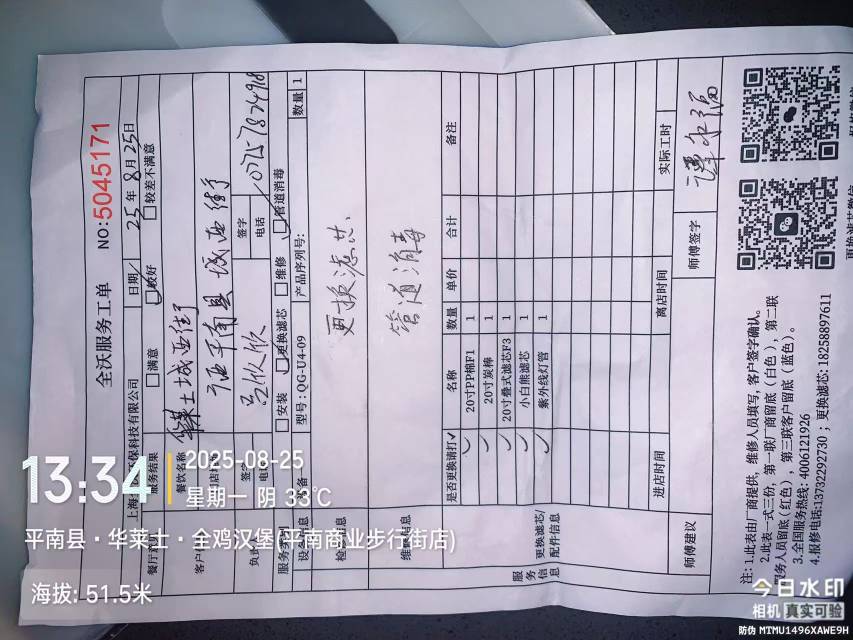 全沃服务工单
NO:5045171
日期/ 25年8月25日
服务结果 满意 较好 较差不满意
餐饮名称 华莱士城西街
广西平南县城西街
签字
电话
签字
电话
服务类别 安装 更换滤芯 维修 管道消毒
型号:QG-U4-09 产品序列号: 数量 1
更换滤芯.
管道消毒
是否更换请打√ 名称 数量 单价 合计 备注
√ 20寸PP棉F1 1
√ 20寸炭棒 1
√ 20寸叠式滤芯F3 1
√ 小白熊滤芯 1
√ 紫外线灯管 1
服务信息
更换滤芯/配件信息
进店时间 离店时间 实际工时
师傅建议 师傅签字
注: 1.此表由厂商提供,维修人员填写,客户签字确认。
2.此表一式三份,第一联厂商留底(白色),第二联
服务人员留底(红色),第三联客户留底(蓝色)。
3.全国服务热线: 4006121926
4.报修电话:13732292730 ; 更换滤芯: 18258897611
13:34
2025-08-25
星期一 阴 33℃
平南县·华莱士·全鸡汉堡(平南商业步行街店)
海拔: 51.5米
今日水印
相机 真实可验
防伪 MTMU1496XAWE9H